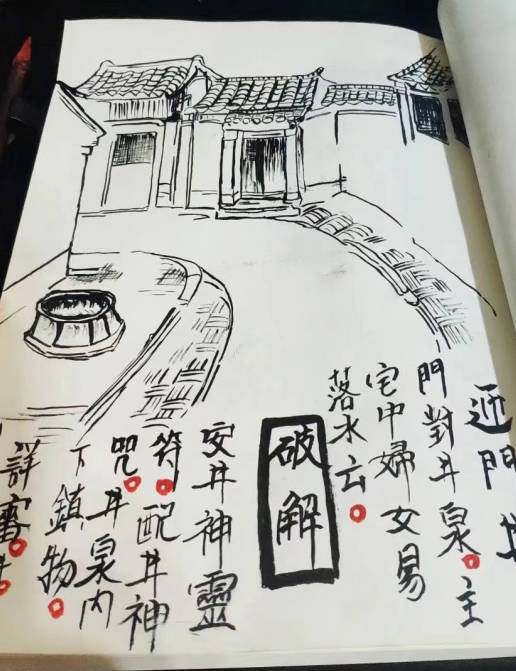 迎門井
門對井泉。主
宅中婦女易
落水云。
破解
安井神靈
符。配井神
咒。井泉内
下鎮物。
詳審。